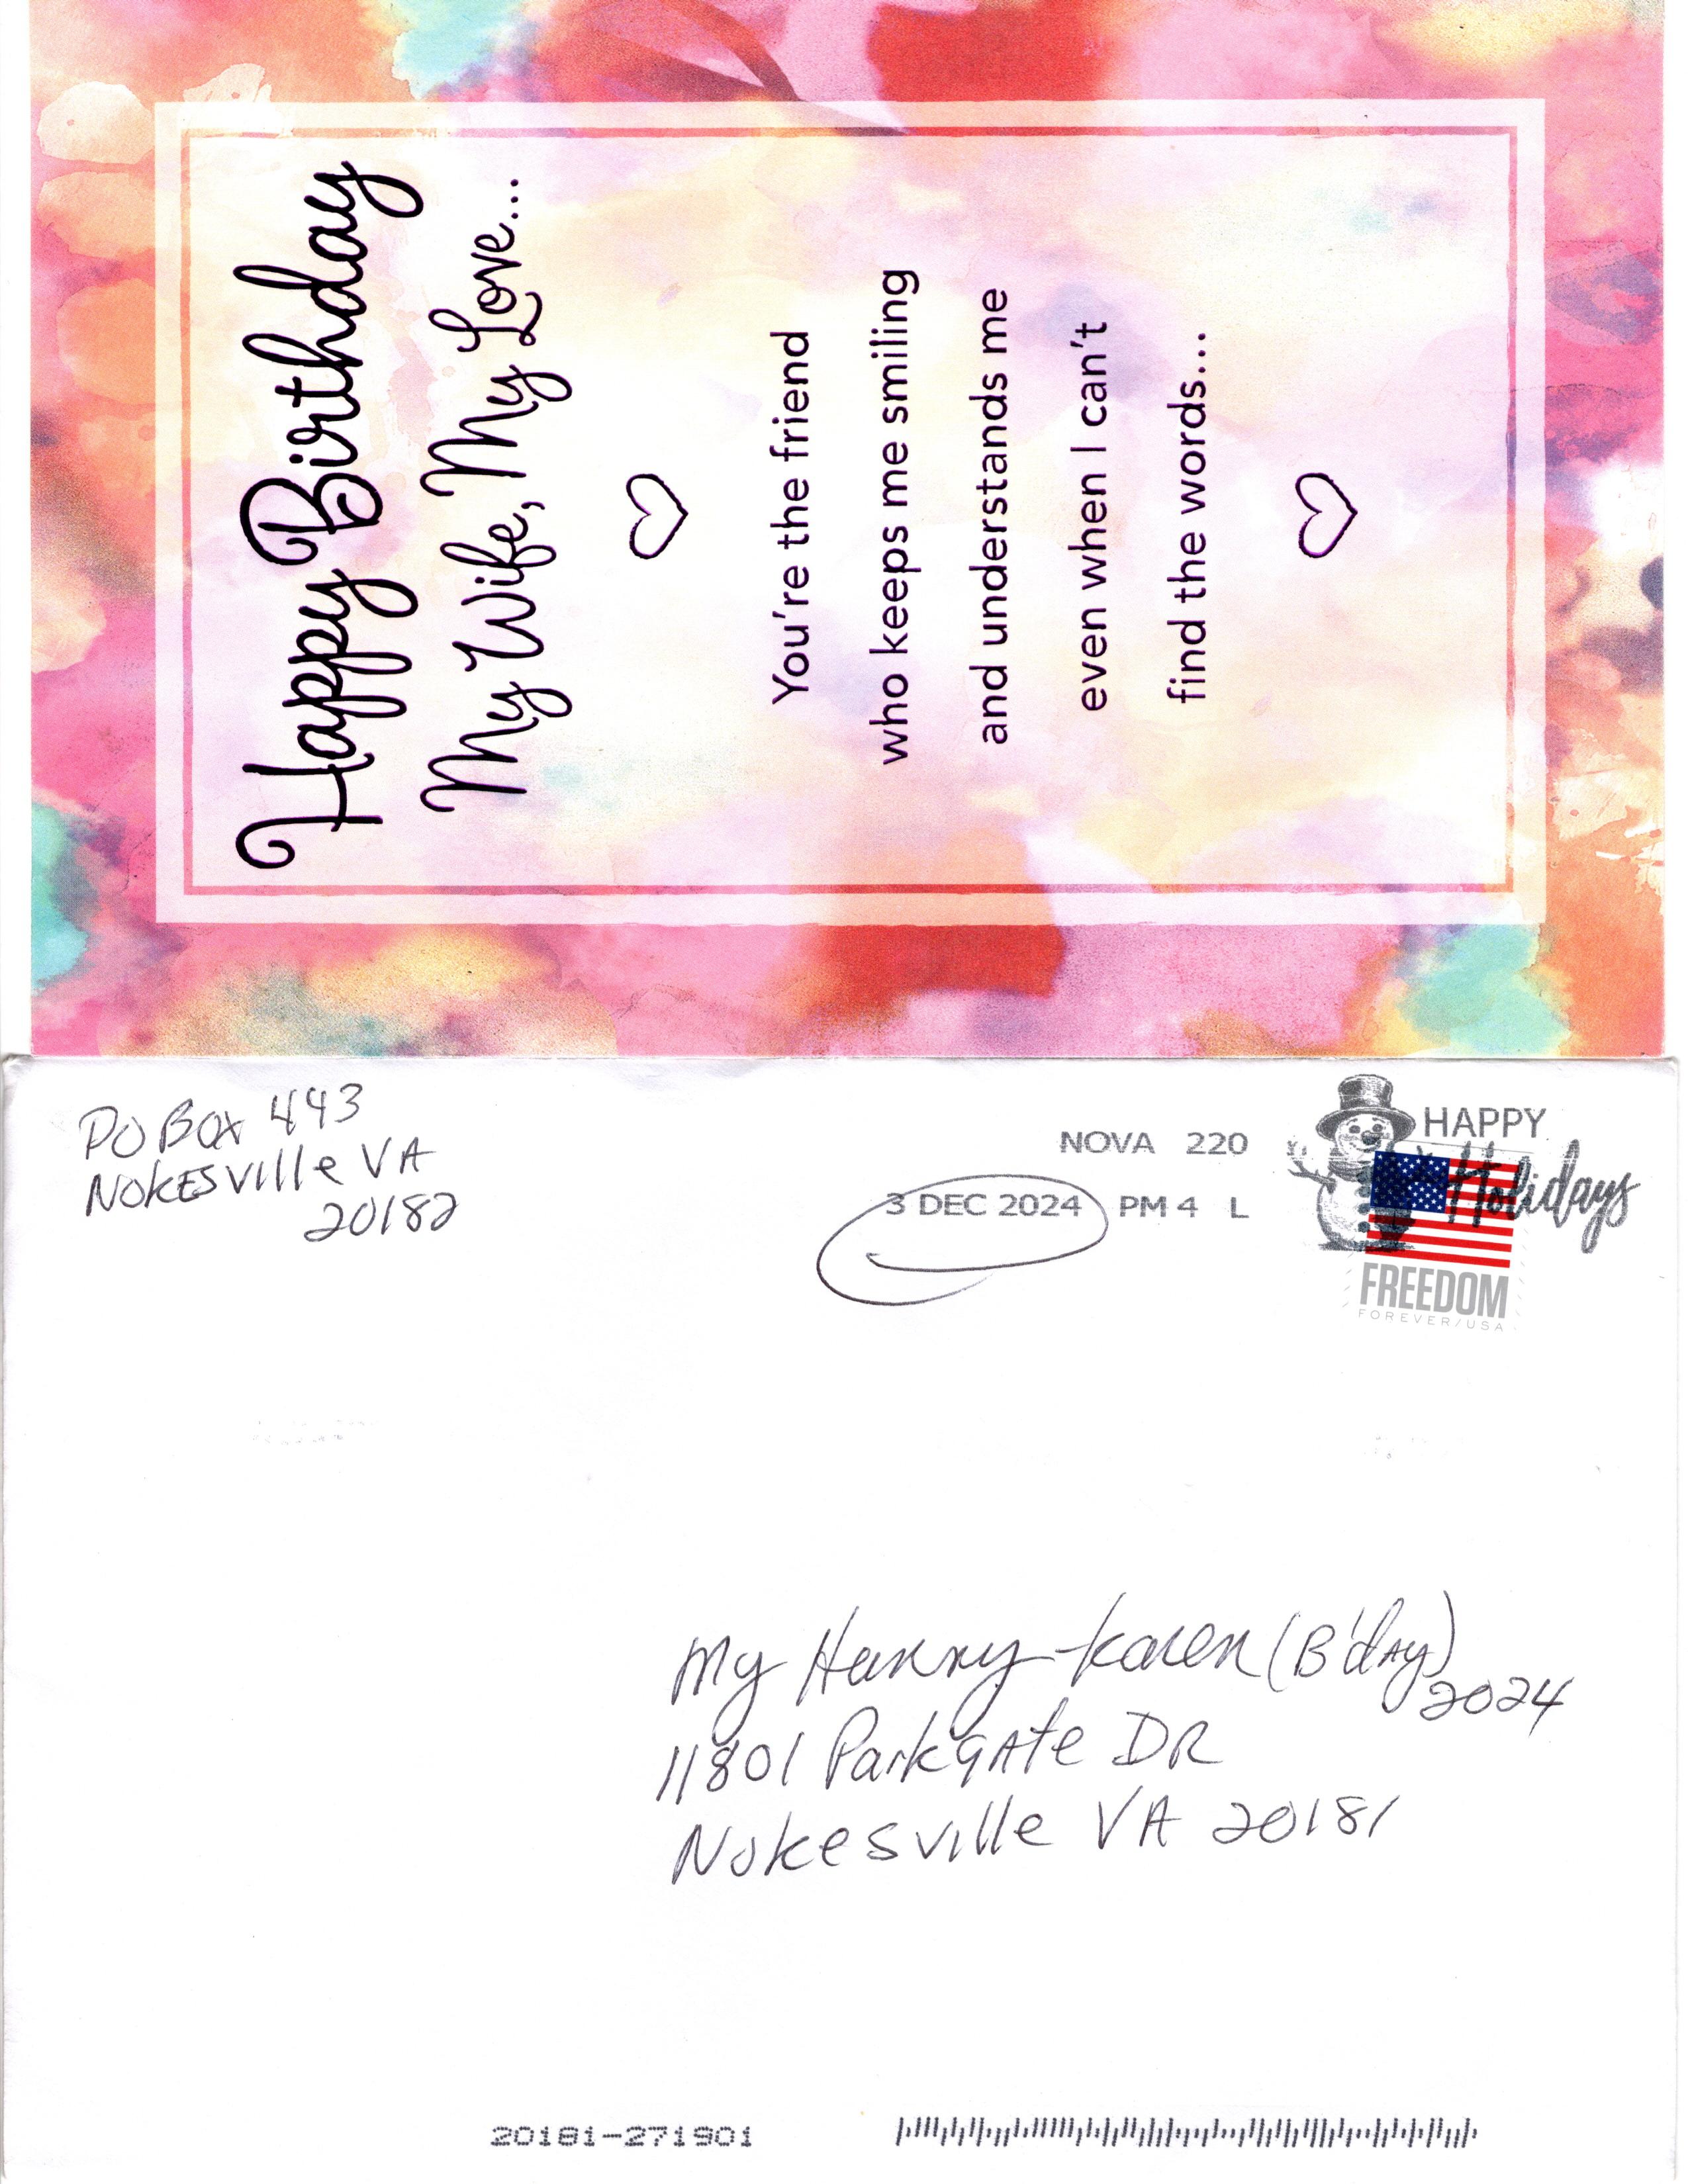 Happy Birthday
My Wife, My Love...
You're the friend
who keeps me smiling
and understands me
even when I can't
find the words...
PO Box 443
Nokesville VA
20182
NOVA 220
3 DEC 2024 PM 4 L
HAPPY
Holidays
FREEDOM
FOREVER/USA
My Hunny-Karen (B'day)
2024
11801 Parkgate DR
Nokesville VA 20181
20181-271901